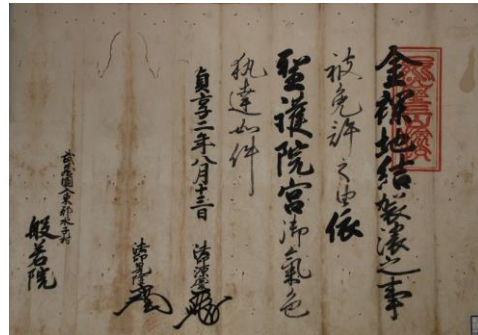 金襴地結袈裟之事
被免許之由依
聖護院宮御氣色
執達如件
貞享二年八月十三日
武蔵國入東郡水子村
般若院